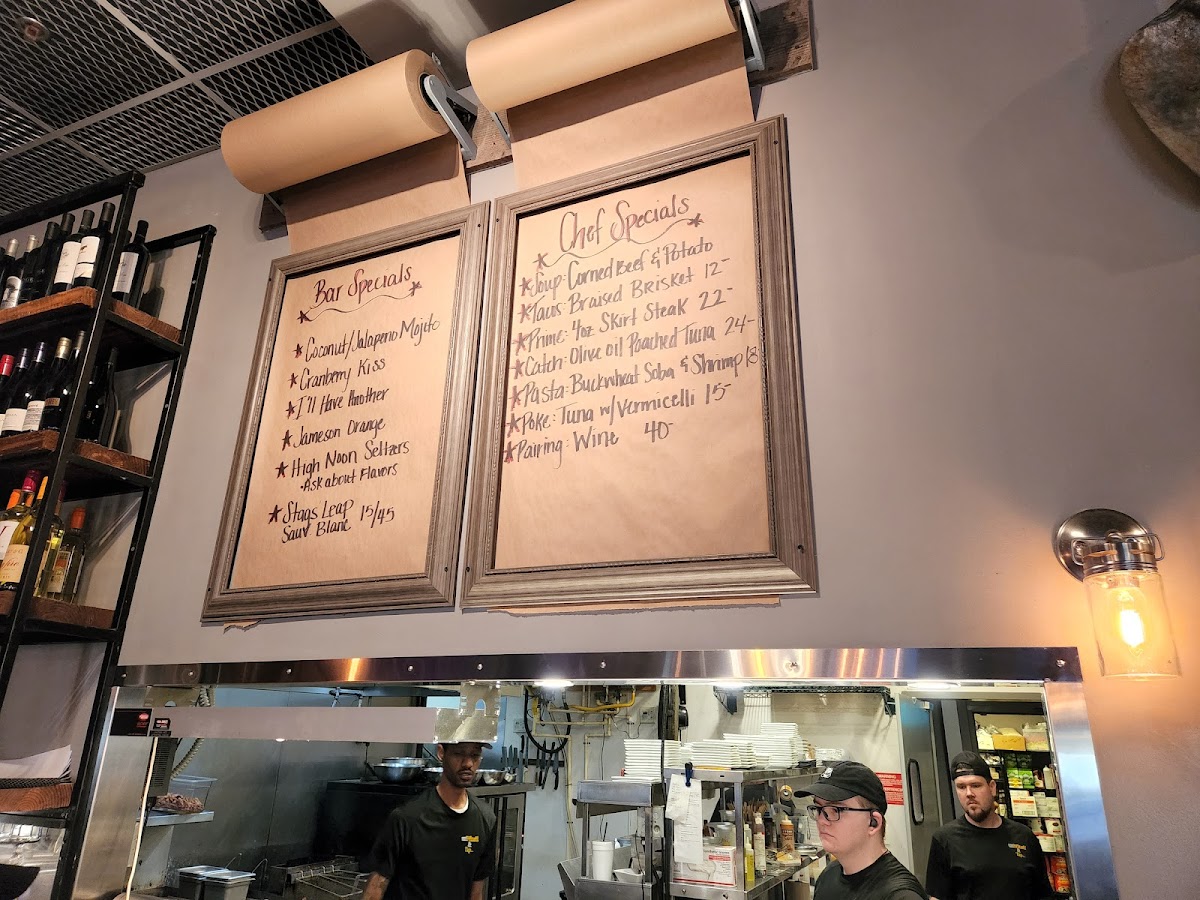 Bar Specials
Coconut/Jalapeno Mojito
Cranberry Kiss
I'll Have Another
Jameson Orange
High Noon Seltzers
•Ask about Flavors
Stags Leap
Sauv Blanc 15/45
Chef Specials
Soup: Corned Beef & Potato
Tacos: Braised Brisket 12-
Prime: 4oz Skirt Steak 22-
Catch: Olive oil Poached Tuna 24-
Pasta: Buckwheat Soba & Shrimp 18
Poke: Tuna w/ Vermicelli 15-
Pairing: Wine 40-